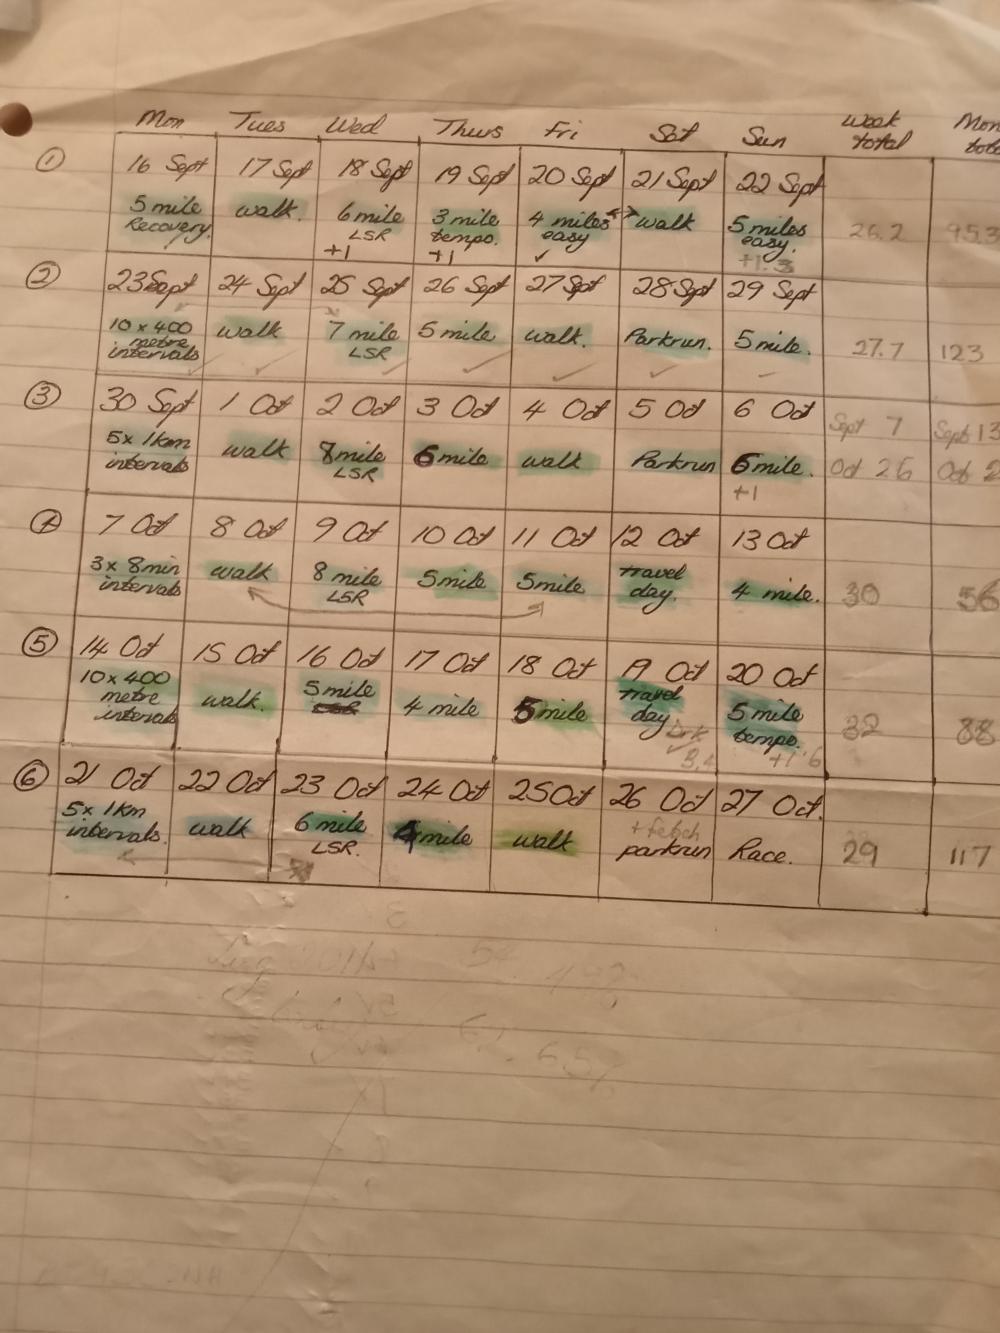 Mon Tues Wed Thurs Fri Sat Sun week total Mon
1 16 Sept 17 Sept 18 Sept 19 Sept 20 Sept 21 Sept 22 Sept
5 mile walk. 6 mile 3 mile 4 miles ↔ walk 5 miles
Recovery. LSR tempo. easy easy. 26.2 95.3
+1 +1 ✓ +1.3
2 23 Sept 24 Sept 25 Sept 26 Sept 27 Sept 28 Sept 29 Sept
10 x 400 walk 7 mile 5 mile walk. Parkrun. 5 mile. 27.7 123
metre LSR
intervals
3 30 Sept 1 Oct 2 Oct 3 Oct 4 Oct 5 Oct 6 Oct Sept 7 Sept 13
5 x 1km walk 8 mile 6 mile walk Parkrun 6 mile. Oct 26 Oct 2
intervals LSR +1
4 7 Oct 8 Oct 9 Oct 10 Oct 11 Oct 12 Oct 13 Oct
3 x 8min walk 8 mile 5 mile 5 mile travel 4 mile. 30 56
intervals LSR day.
5 14 Oct 15 Oct 16 Oct 17 Oct 18 Oct 19 Oct 20 Oct
10 x 400 walk. 5 mile 4 mile 5 mile travel 5 mile 32 88
metre day tempo.
intervals +1.6
6 21 Oct 22 Oct 23 Oct 24 Oct 25 Oct 26 Oct 27 Oct.
5 x 1km walk 6 mile 4 mile walk + fetch Race. 29 117
intervals. LSR. parkrun